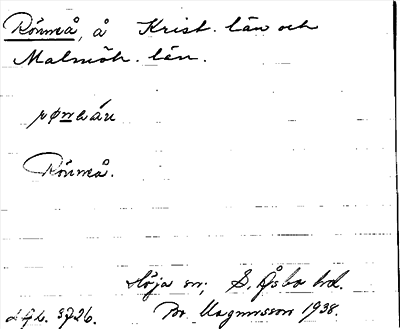 Rönneå, å Krist. län och
Malmöh. län.
Rönneå.
Höja sn; S. Åsbo hd.
Br. Magnusson 1938.